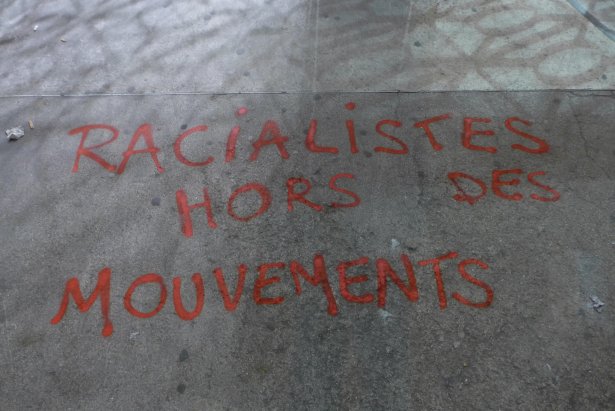 RACiALiSTES
HORS DES
MOUVEMENTS